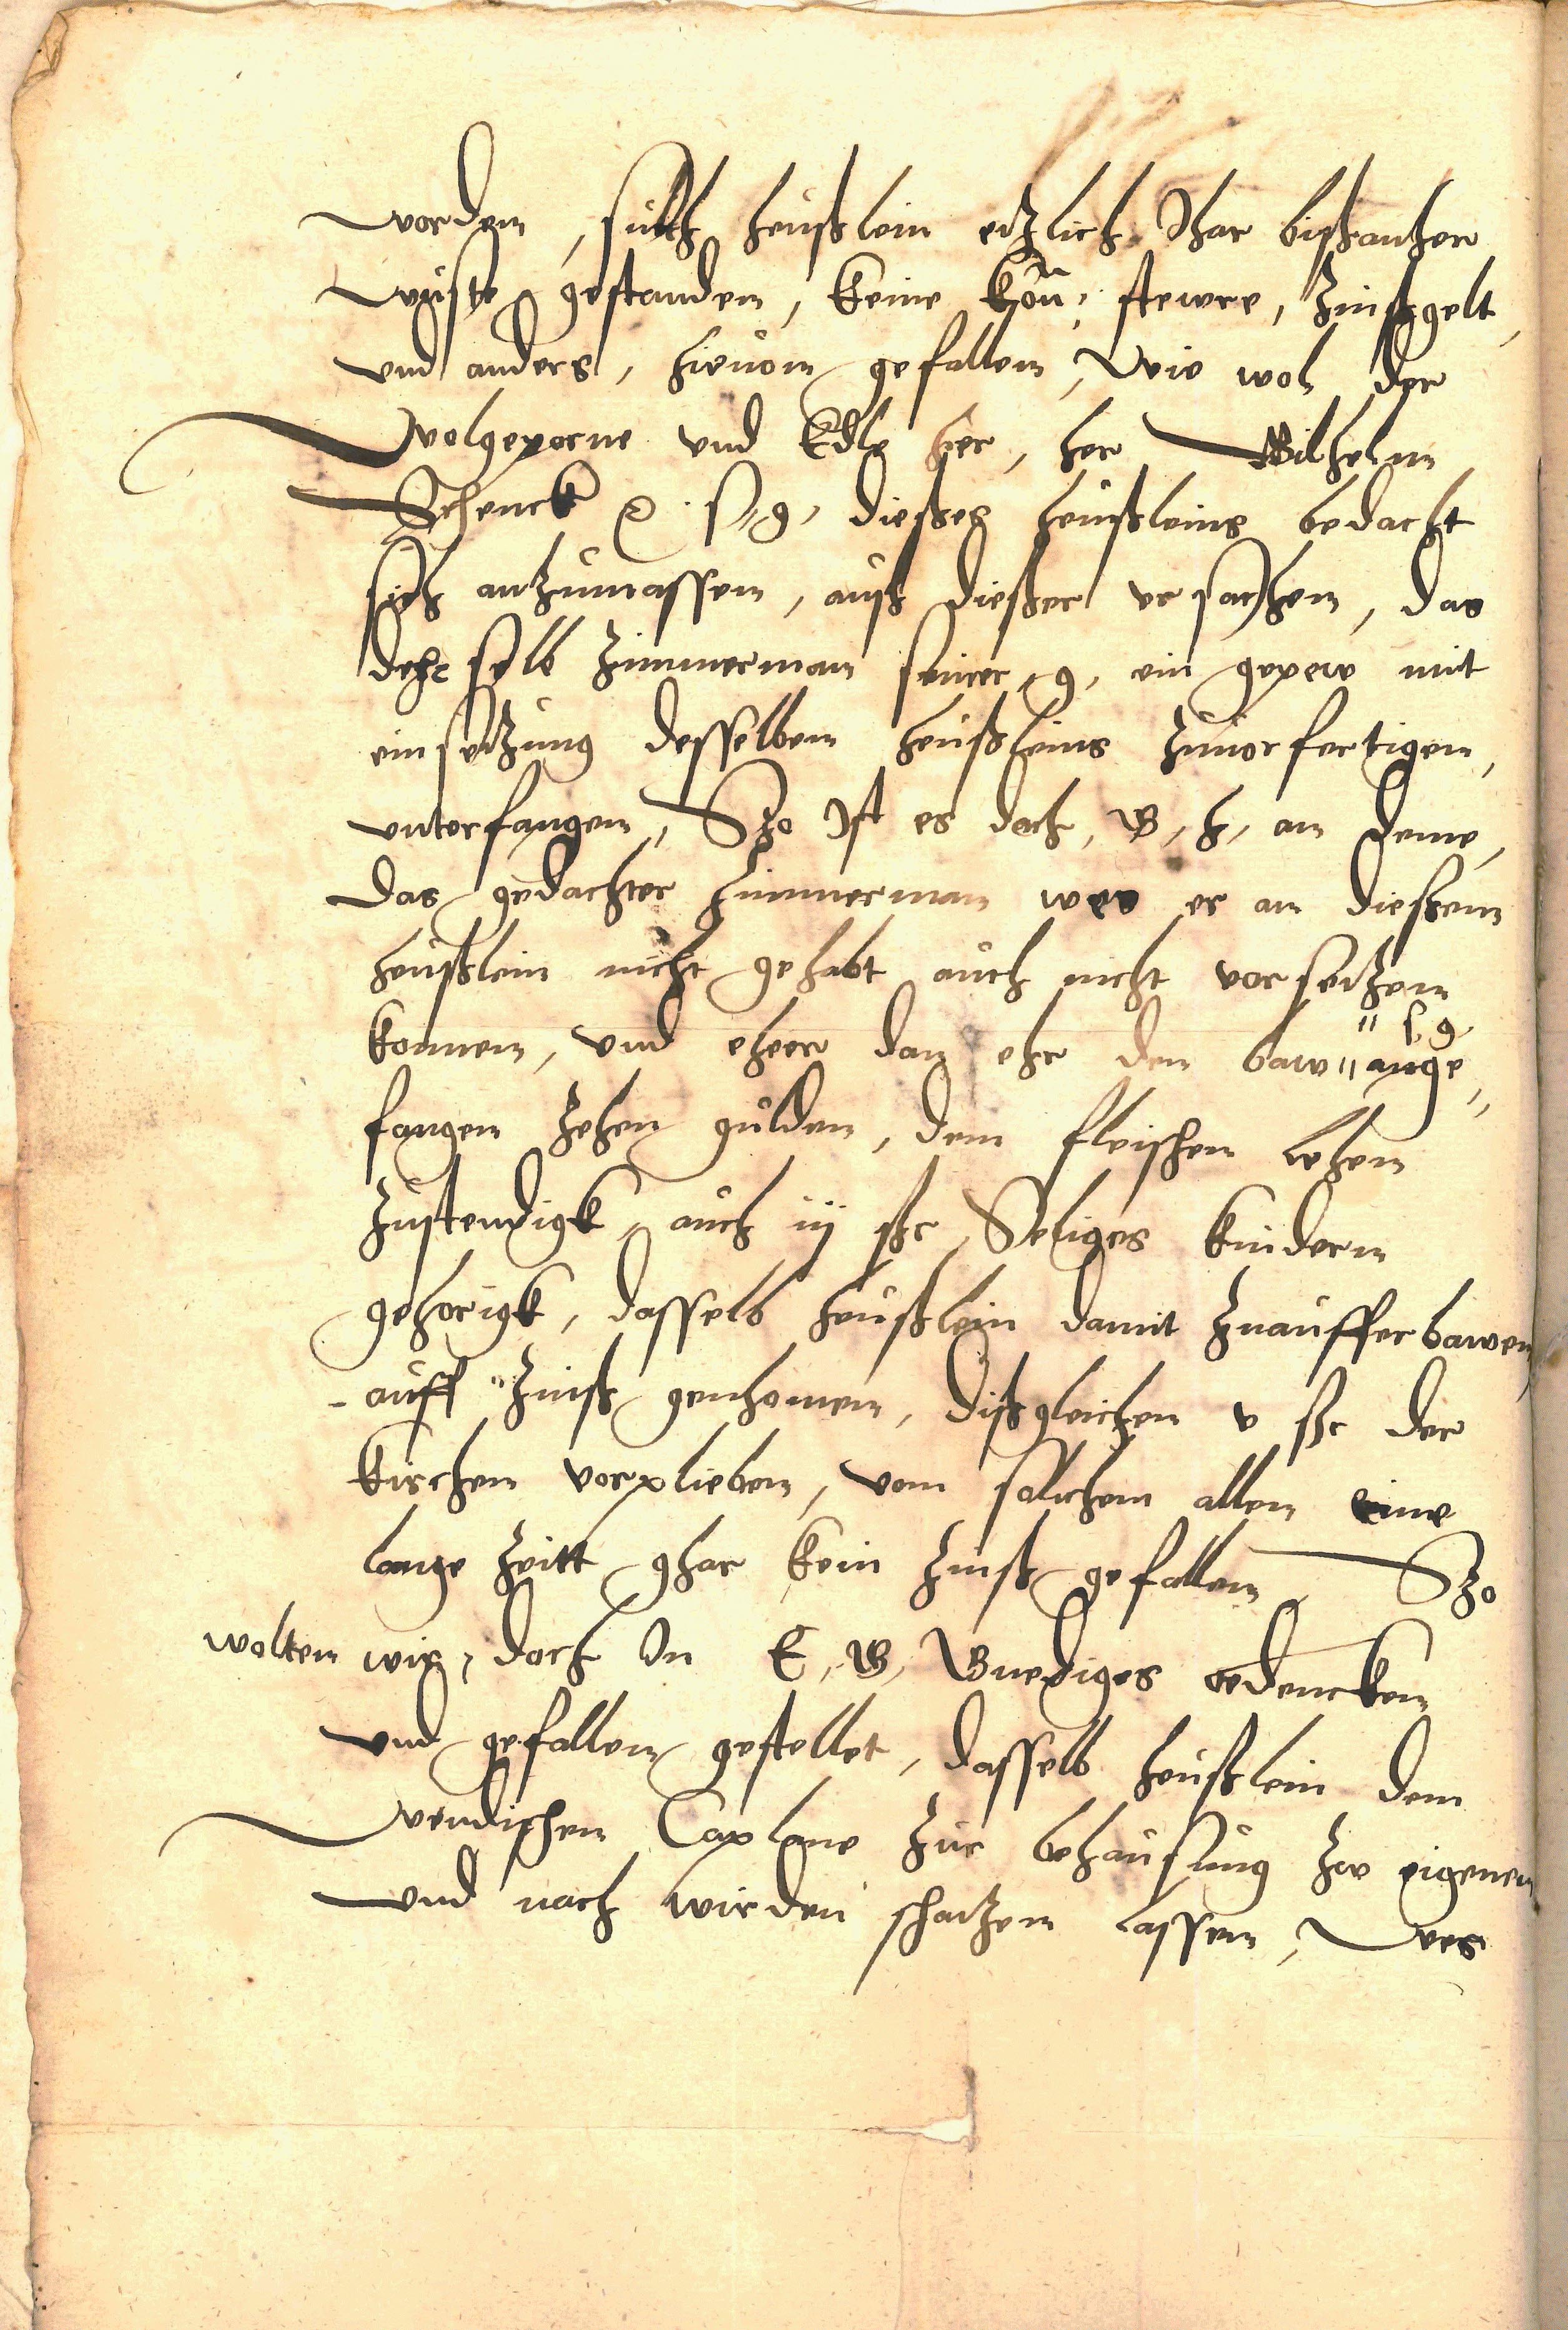 worden, sulch heußlein etzlich Jhar bißanher
wuste gestanden, keine kön: stewre, Zinßgelt,
vnd anders, hieuon gefallen, Wie wol der
Wolgeporne vnd Edle her, her Wilhelm
Schenck ꝛc. s, g, dießes heußleins bedacht
sich anzumassen, auß dießer vrsachen, das
derselb Zimmerman seiner, g, ein gepew mit
einsetzung desselben heußleins zuuorfertigen,
vnterfangen, Szo Ist es doch, W, h, an deme,
Das gedachter Zimmerman wes er an dießem
heußlein nicht gehabt auch nicht vorsetzen
konnen, vnd eheer dan ehr den baw " s, g, " ange,,
fangen zehen gulden, dem fleischen Lehen
zustendigk, auch iij ßr Seliges kindern
gehorigk, dasselb heußlein damit zuaufferbawen,
auff Zinß genhomen, dißgleichen v ßr der
kirchen vorplieben, von solichem allen eine
lange zeitt ghar kein Zinß gefallen, Szo
wolten wir, doch In E, W, Wirdiges bedencken
vnd gefallen gestellet, dasselb heußlein dem
wendischen Caplane zur behausung zw eigenen
vnd nach wirden schatzen lassen, Wes